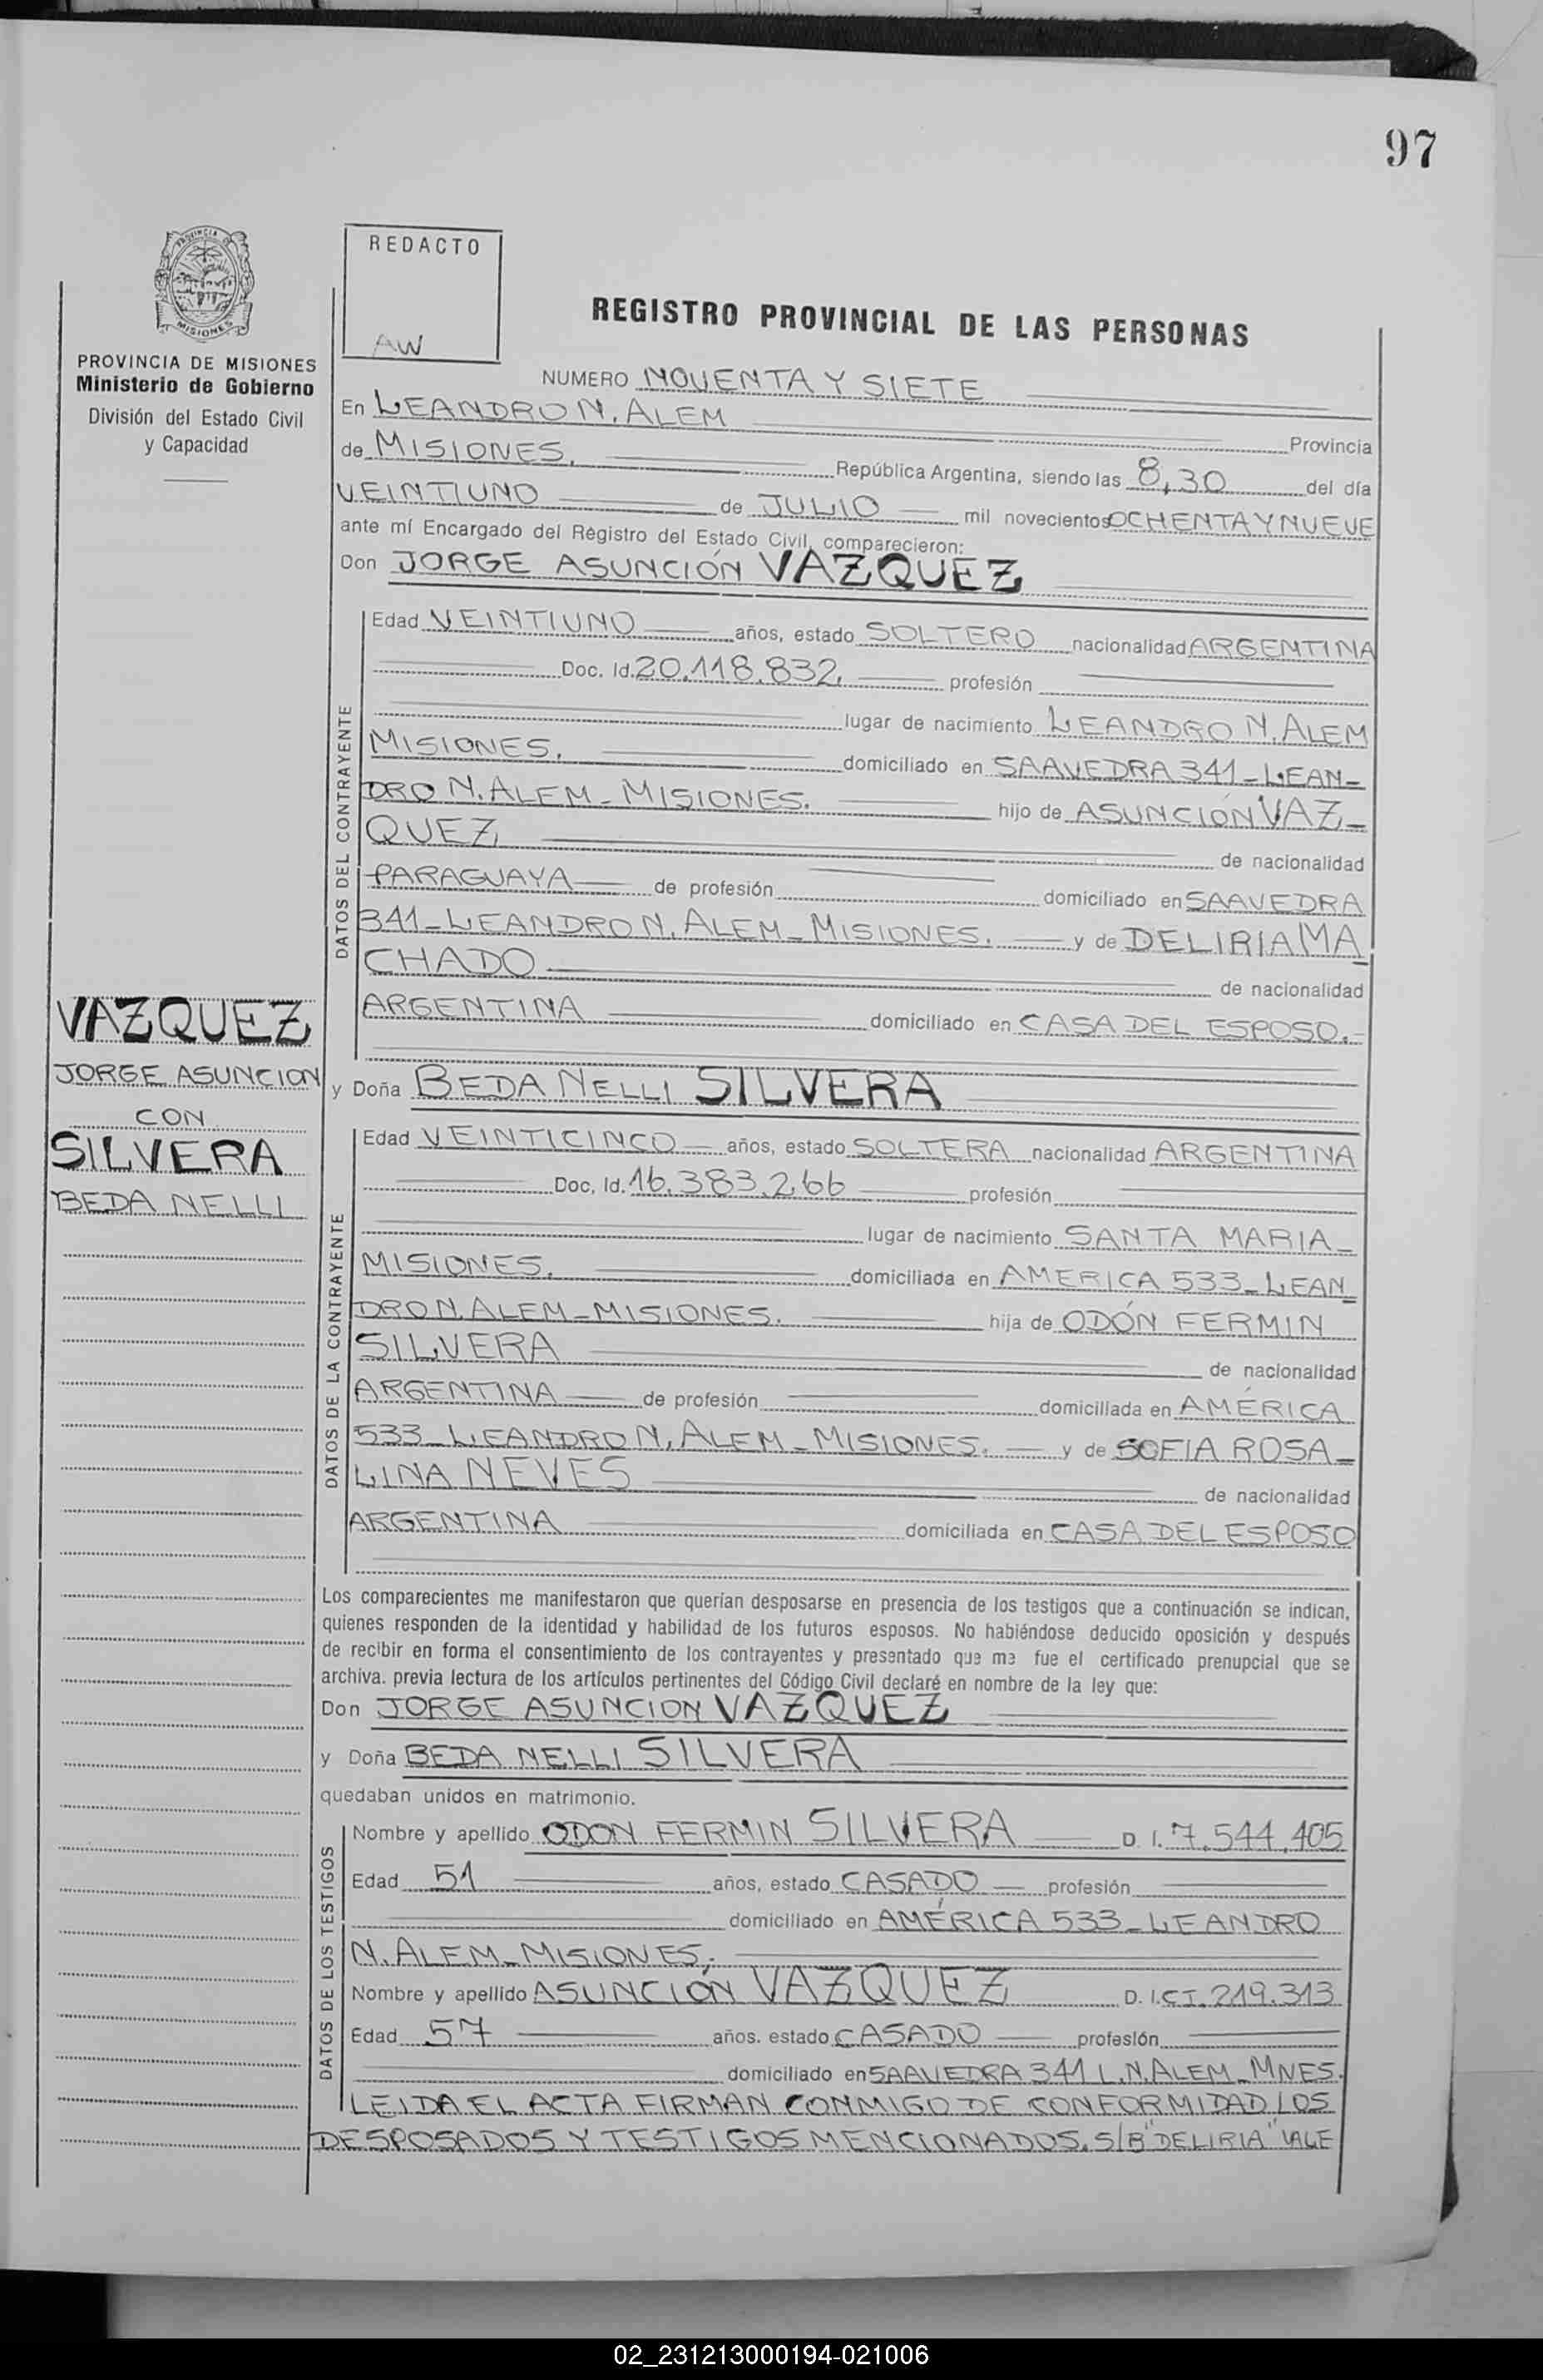 97
REDACTO
AW
MISIONES
PROVINCIA DE MISIONES
Ministerio de Gobierno
División del Estado Civil
y Capacidad
REGISTRO PROVINCIAL DE LAS PERSONAS
NUMERO NOVENTA Y SIETE
En LEANDRO N. ALEM Provincia
de MISIONES. República Argentina, siendo las 8,30 del día
VEINTIUNO de JULIO mil novecientos OCHENTA Y NUEVE
ante mí Encargado del Registro del Estado Civil, comparecieron:
Don JORGE ASUNCIÓN VAZQUEZ
DATOS DEL CONTRAYENTE
Edad VEINTIUNO años, estado SOLTERO nacionalidad ARGENTINA
Doc. Id. 20.118.832. profesión
lugar de nacimiento LEANDRO N. ALEM
MISIONES. domiciliado en SAAVEDRA 341_LEAN_
DRO N. ALEM_MISIONES. hijo de ASUNCIÓN VAZ_
QUEZ de nacionalidad
PARAGUAYA de profesión domiciliado en SAAVEDRA
341_LEANDRO N. ALEM_MISIONES. y de DELIRIA MA_
CHADO de nacionalidad
ARGENTINA domiciliado en CASA DEL ESPOSO.-
VAZQUEZ
JORGE ASUNCION
CON
SILVERA
BEDA NELLI
y Doña BEDA NELLI SILVERA
DATOS DE LA CONTRAYENTE
Edad VEINTICINCO años, estado SOLTERA nacionalidad ARGENTINA
Doc. Id. 16.383.266 profesión
lugar de nacimiento SANTA MARIA_
MISIONES. domiciliada en AMERICA 533_LEAN_
DRO N. ALEM_MISIONES. hija de ODÓN FERMIN
SILVERA de nacionalidad
ARGENTINA de profesión domiciliada en AMÉRICA
533_LEANDRO N. ALEM_MISIONES. y de SOFIA ROSA_
LINA NEVES de nacionalidad
ARGENTINA domiciliada en CASA DEL ESPOSO
Los comparecientes me manifestaron que querían desposarse en presencia de los testigos que a continuación se indican,
quienes responden de la identidad y habilidad de los futuros esposos. No habiéndose deducido oposición y después
de recibir en forma el consentimiento de los contrayentes y presentado que me fue el certificado prenupcial que se
archiva. previa lectura de los artículos pertinentes del Código Civil declaré en nombre de la ley que:
Don JORGE ASUNCION VAZQUEZ
y Doña BEDA NELLI SILVERA
quedaban unidos en matrimonio.
DATOS DE LOS TESTIGOS
Nombre y apellido ODON FERMIN SILVERA D. I. 7.544.405
Edad 51 años, estado CASADO profesión
domiciliado en AMÉRICA 533_LEANDRO
N. ALEM_MISIONES.-
Nombre y apellido ASUNCIÓN VAZQUEZ D. I. CI. 219.313
Edad 57 años. estado CASADO profesión
domiciliado en SAAVEDRA 341 L.N. ALEM_MNES.
LEIDA EL ACTA FIRMAN CONMIGO DE CONFORMIDAD LOS
DESPOSADOS Y TESTIGOS MENCIONADOS. S/B "DELIRIA" VALE
02_231213000194-021006